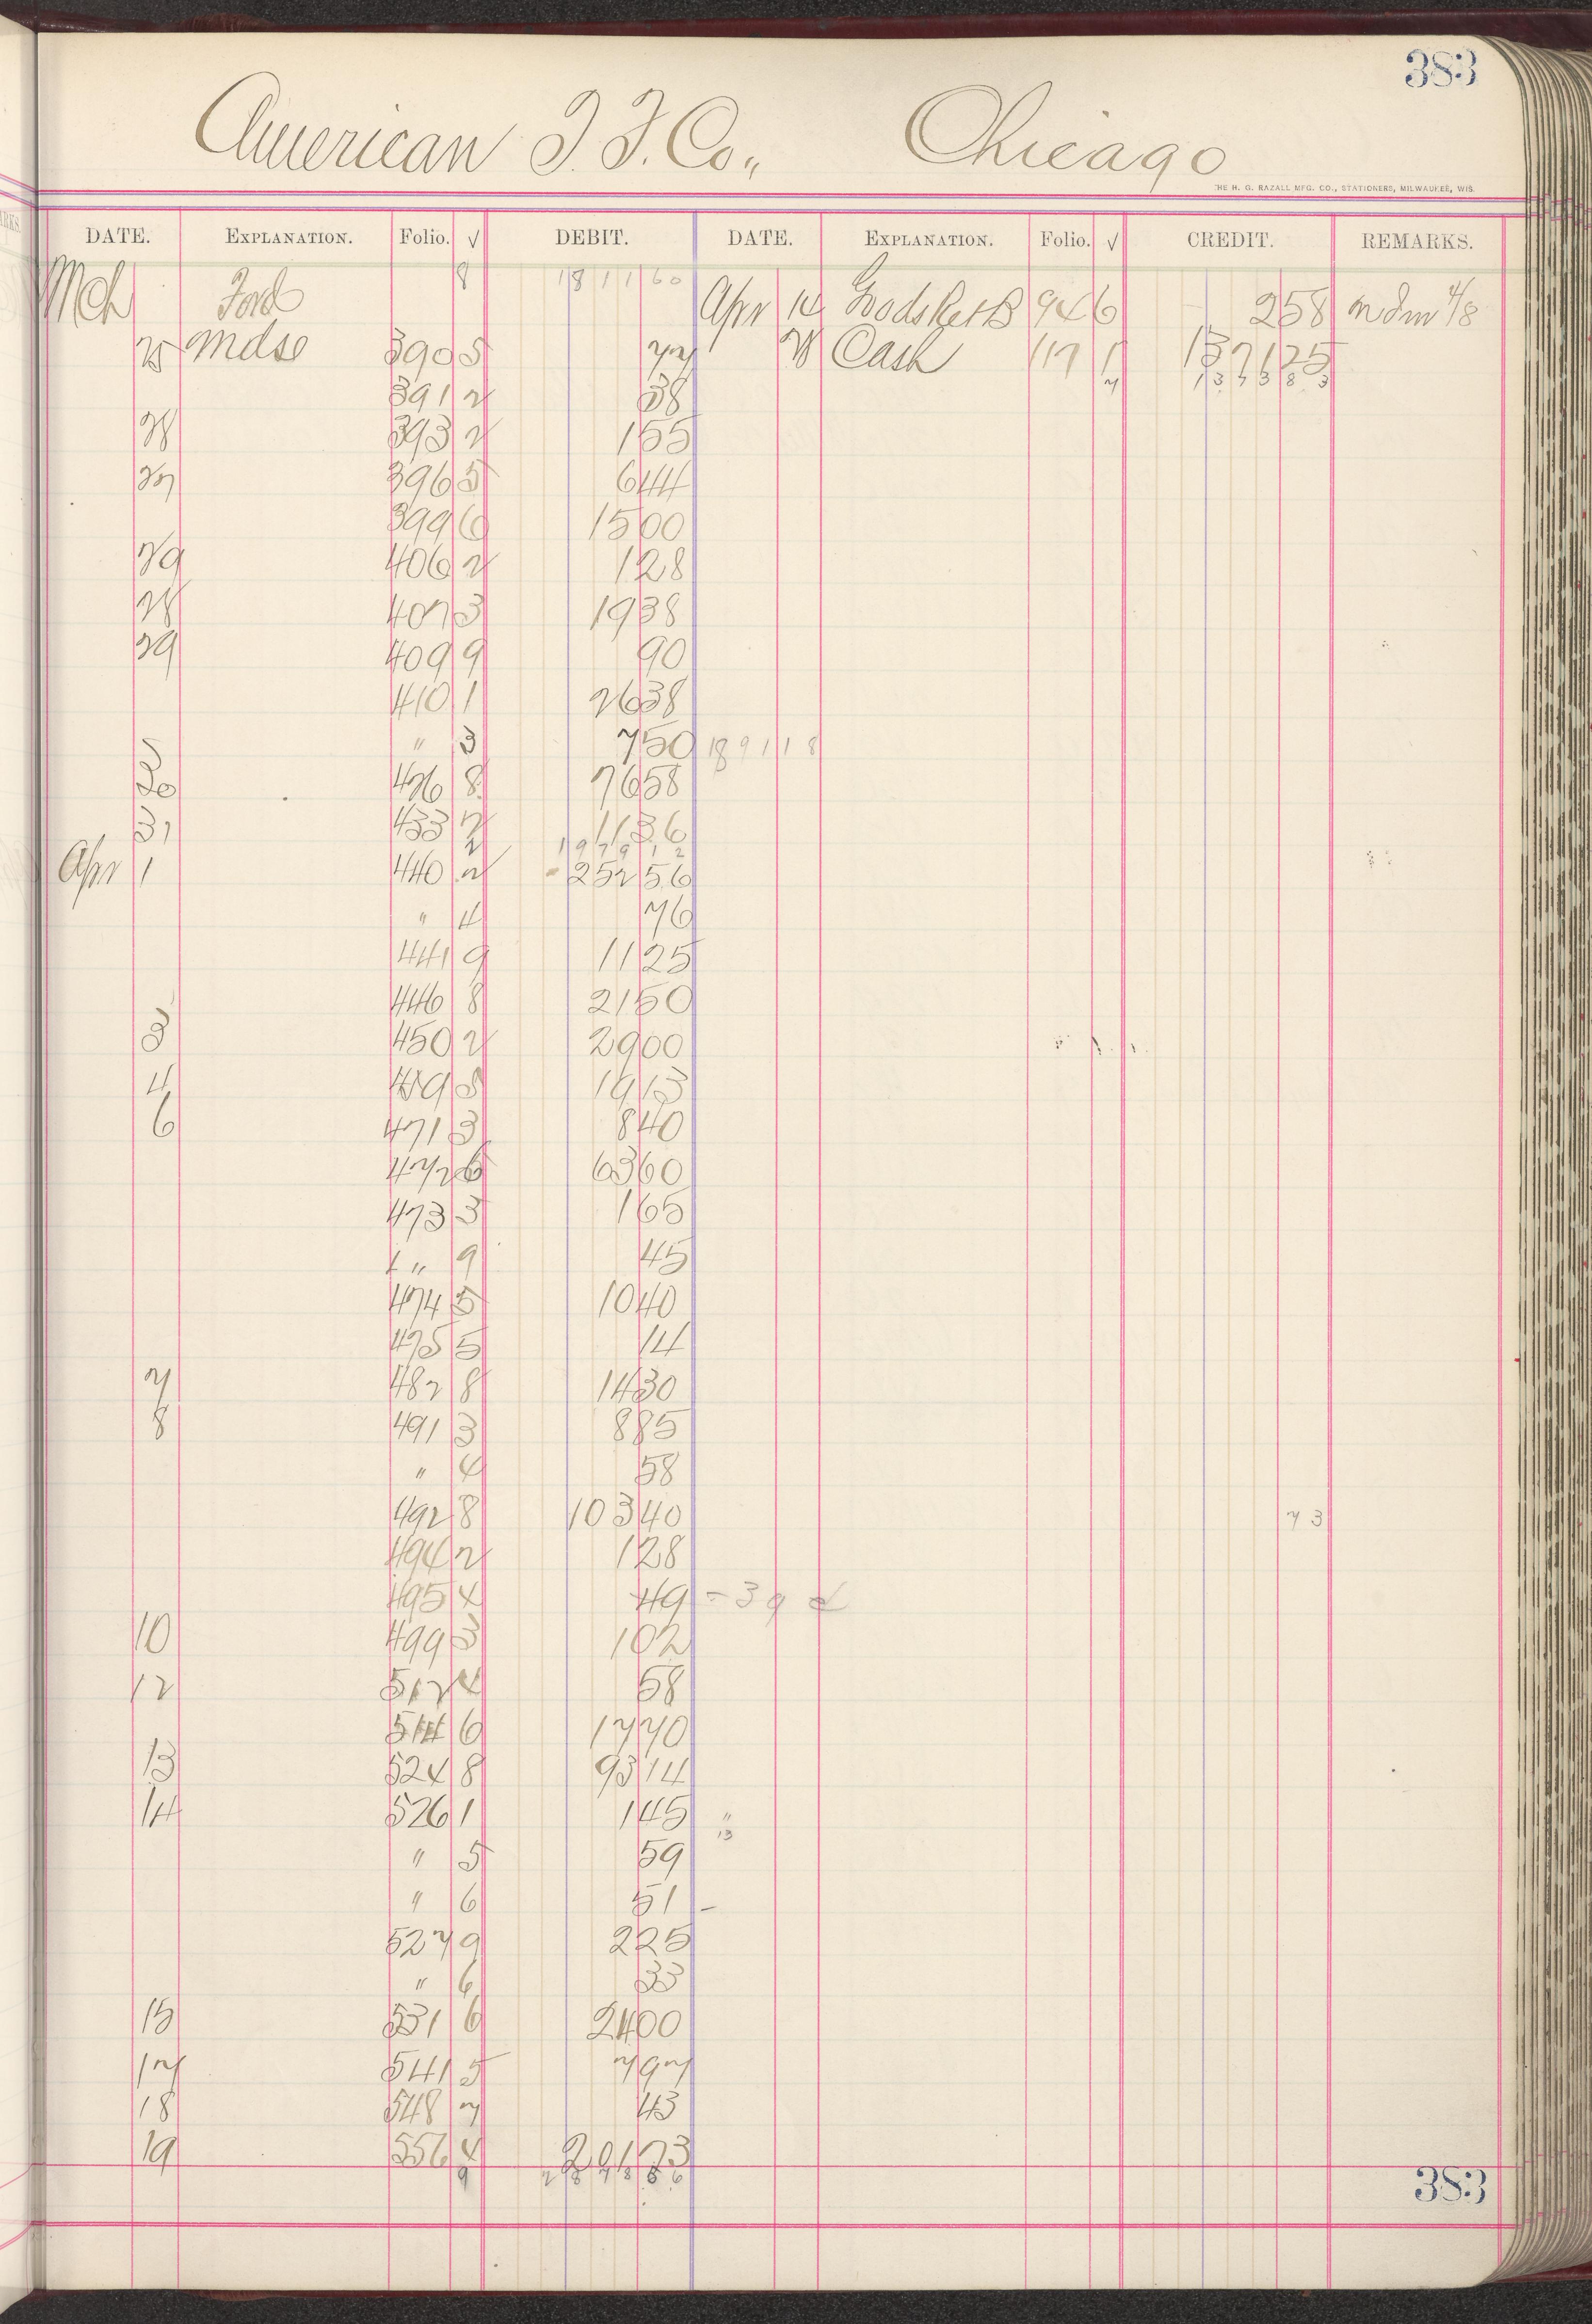 383
American T. F. Co., Chicago
THE H. G. RAZALL MFG. CO., STATIONERS, MILWAUKEE, WIS.
DATE. EXPLANATION. Folio. √ DEBIT. DATE. EXPLANATION. Folio. √ CREDIT. REMARKS.
Mch Ford 8 1811 60 Apr 14 Goods Ret B 94 6 2 58 mdm 4/8
25 Mdse 390 5 77 28 Cash 117 1 1371 25
391 2 38 7 1373 83
28 393 2 1 55
27 396 5 6 44
399 6 15 00
29 406 2 1 28
28 407 3 19 38
29 409 9 90
410 1 26 38
" 3 7 50 1891 18
30 426 8 76 58
31 433 7 11 36
2 1979 12
Apr 1 440 2 252 56
" 4 76
441 9 11 25
446 8 21 50
3 450 2 29 00
4 459 5 19 13
6 471 3 8 40
472 6 63 60
473 3 1 65
" 9 45
474 5 10 40
475 5 14
7 482 8 14 30
8 491 3 8 85
" 4 58
492 8 103 40 73
494 2 1 28
495 4 49 - 39
10 499 3 1 02
12 512 4 58
514 6 17 70
13 524 8 93 14
14 526 1 1 45 "
13
" 5 59
" 6 51 -
527 9 2 25
" 6 33
15 531 6 24 00
17 541 5 7 97
18 548 7 43
19 556 4 201 73
9
383